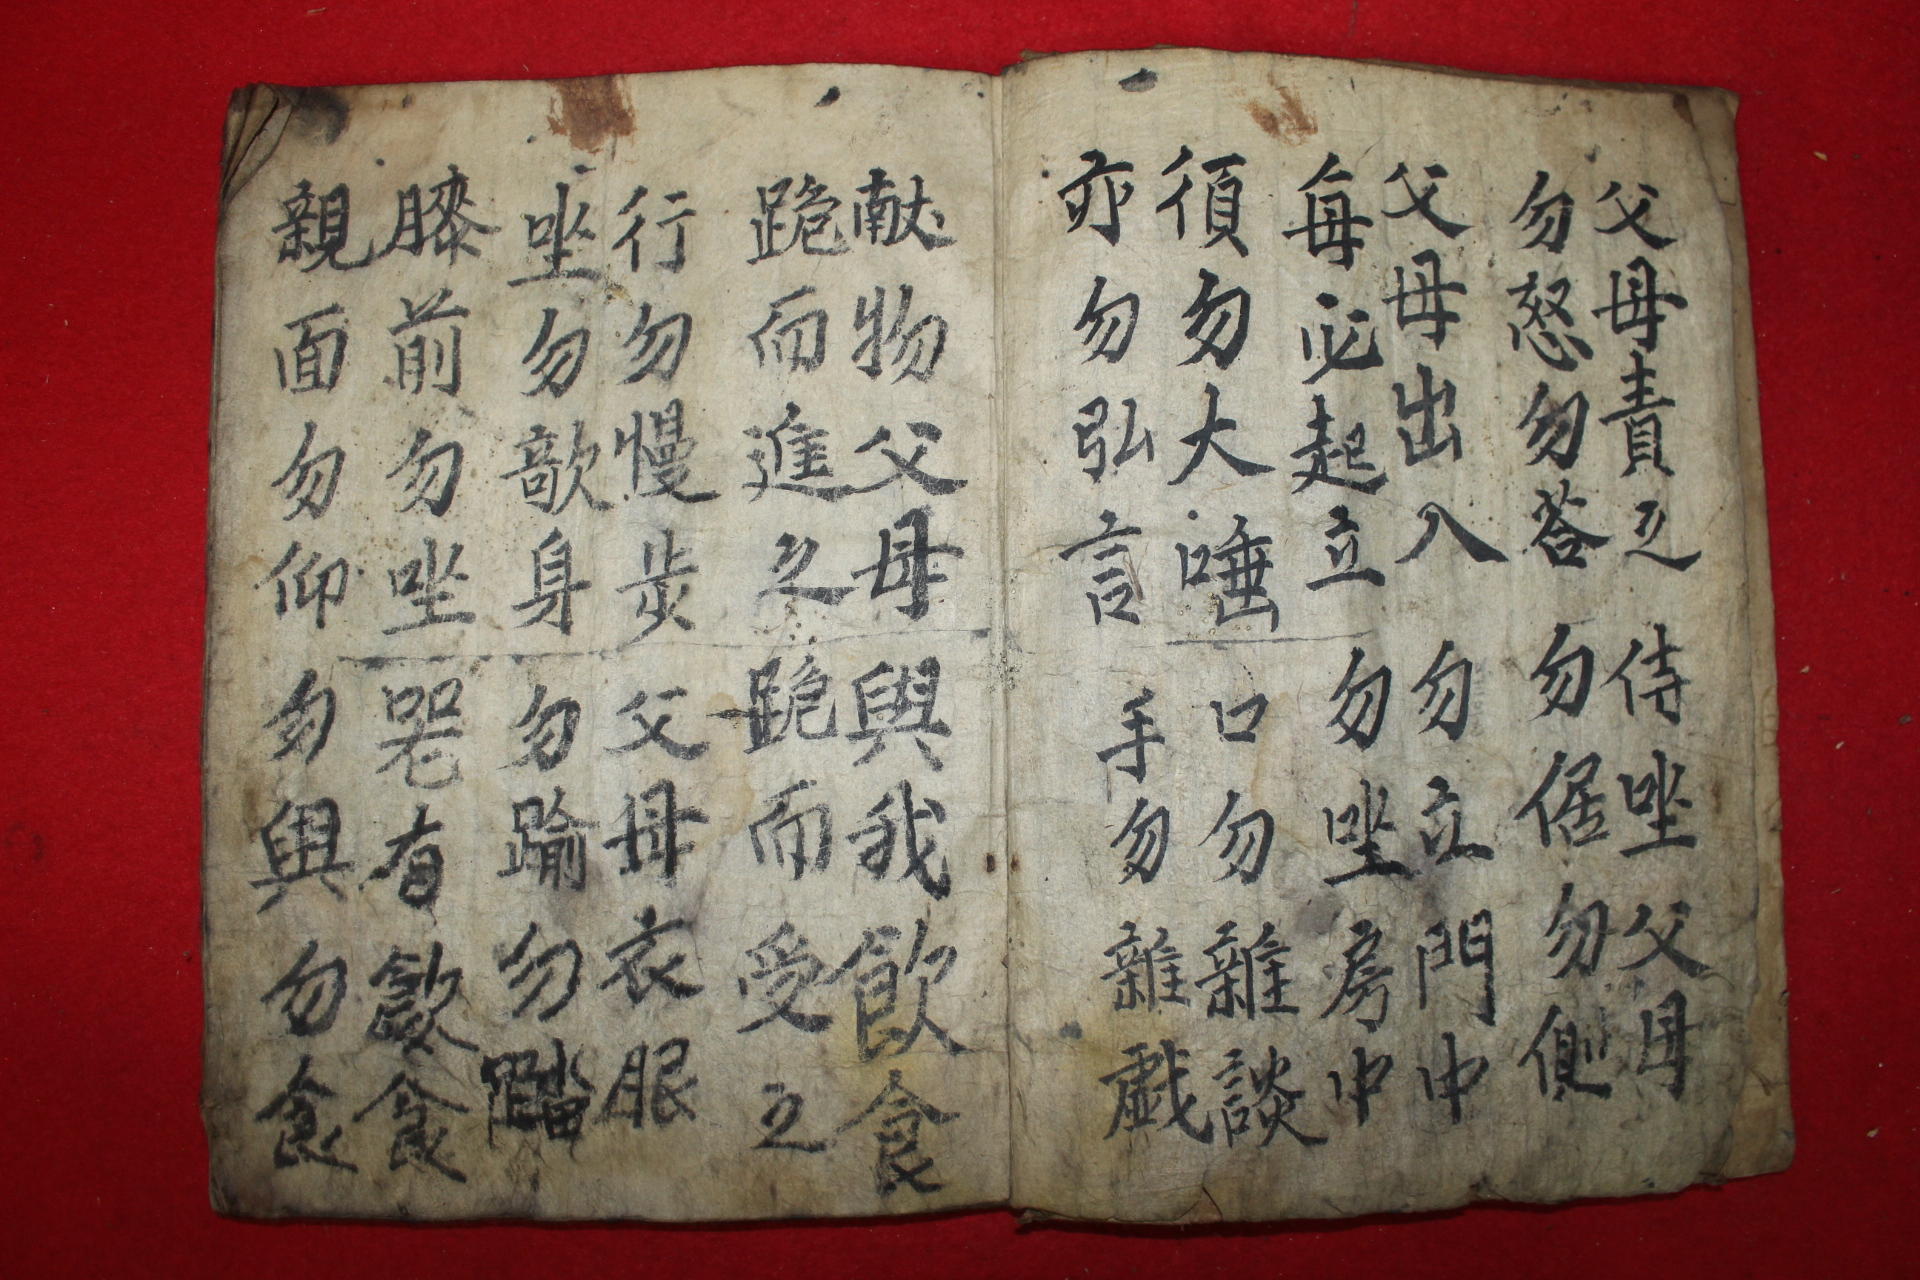 父母責之 侍坐父母
勿怒勿答 勿倨勿側
父母出入 勿立門中
每必起立 勿坐房中
須勿大唾 口勿雜談
亦勿弘言 手勿雜戱
献物父母 與我飮食
跪而進之 跪而受之
行勿慢步 父母衣服
坐勿身 勿踰勿踏
膝前勿坐 器有飮食
親面勿仰 勿與勿食